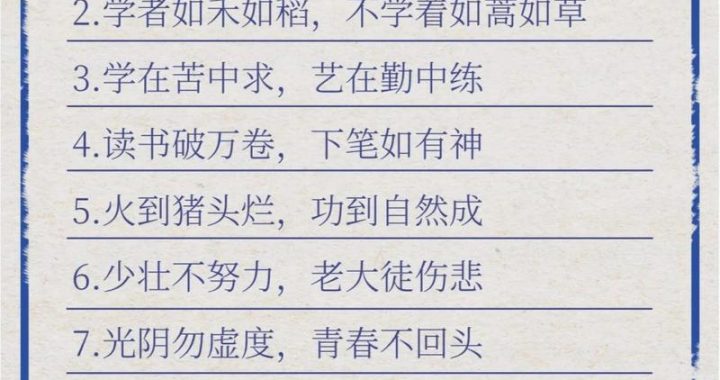 2.学者如禾如稻，不学着如蒿如草
3.学在苦中求，艺在勤中练
4.读书破万卷，下笔如有神
5.火到猪头烂，功到自然成
6.少壮不努力，老大徒伤悲
7.光阴勿虚度，青春不回头